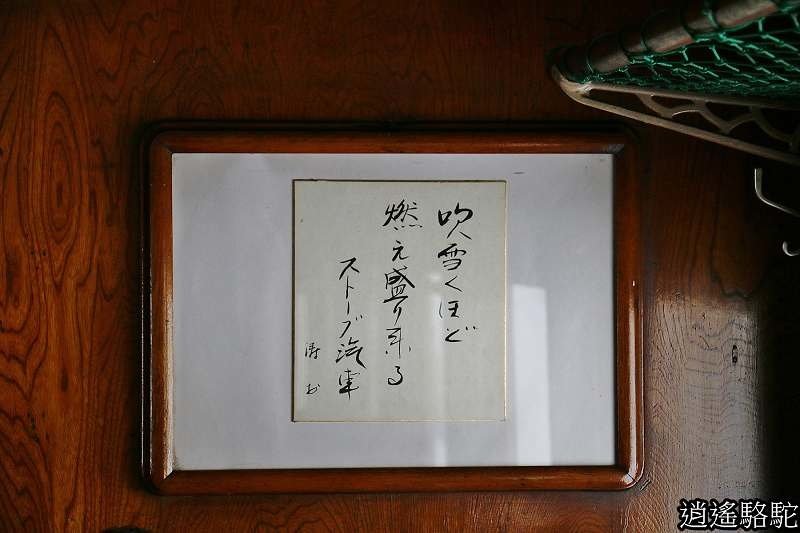 吹雪くほど
燃え盛り来る
ストーブ汽車
逍遙駱駝